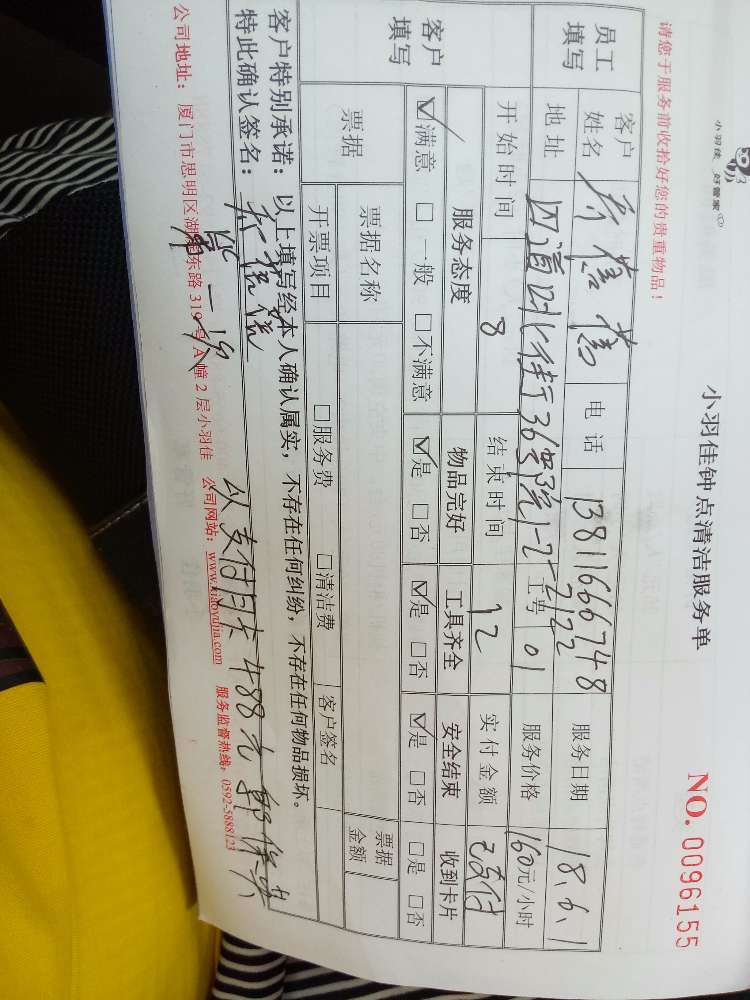 小羽佳 好管家
小羽佳钟点清洁服务单
请您于服务前收拾好您的贵重物品！
NO. 0096155
员工填写
客户姓名
电话 13811666748
服务日期 18.6.1
地址
工号 01
服务价格 160元/小时
开始时间 8
结束时间 12
实付金额 已支付
客户填写
服务态度 物品完好 工具齐全 安全结束 收到卡片
☑满意 □一般 □不满意 ☑是 □否 ☑是 □否 ☑是 □否 □是 □否
票据
票据名称
票据金额
开票项目 □服务费 □清洁费 客户签名
客户特别承诺：以上填写经本人确认属实，不存在任何纠纷，不存在任何物品损坏。
特此确认签名：
以支付月卡488元
公司地址：厦门市思明区湖东路319号A幢2层小羽佳 公司网站：www.xiaoyujia.com 服务监督热线：0592-5888123